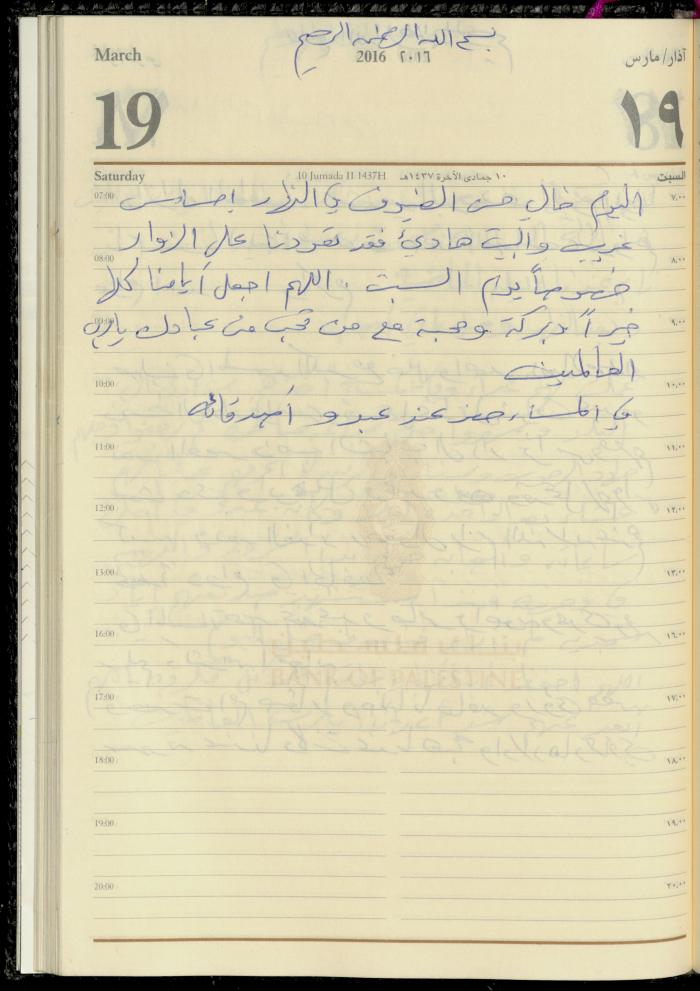 بسم الله الرحمن الرحيم
March 2016 ٢٠١٦ آذار/مارس
19 ١٩
Saturday 10 Jumada II 1437H ١٠ جمادى الآخرة ١٤٣٧هـ السبت
07:00 اليوم خالي من الضيوف في النهار إحساس ٧,٠٠
غريب والبيت هادئ فقد تعودنا على الزوار
08:00 ٨,٠٠
خصوصاً يوم السبت . اللهم اجعل أيامنا كلها
09:00 خيراً وبركة ومحبة مع من تحب من عبادك يا رب ٩,٠٠
العالمين
10:00 ١٠,٠٠
في المساء عند عبد و أصدقائه
11:00 ١١,٠٠
12:00 ١٢,٠٠
13:00 ١٣,٠٠
16:00 ١٦,٠٠
بنك فلسطين
BANK OF PALESTINE
17:00 ١٧,٠٠
18:00 ١٨,٠٠
19:00 ١٩,٠٠
20:00 ٢٠,٠٠